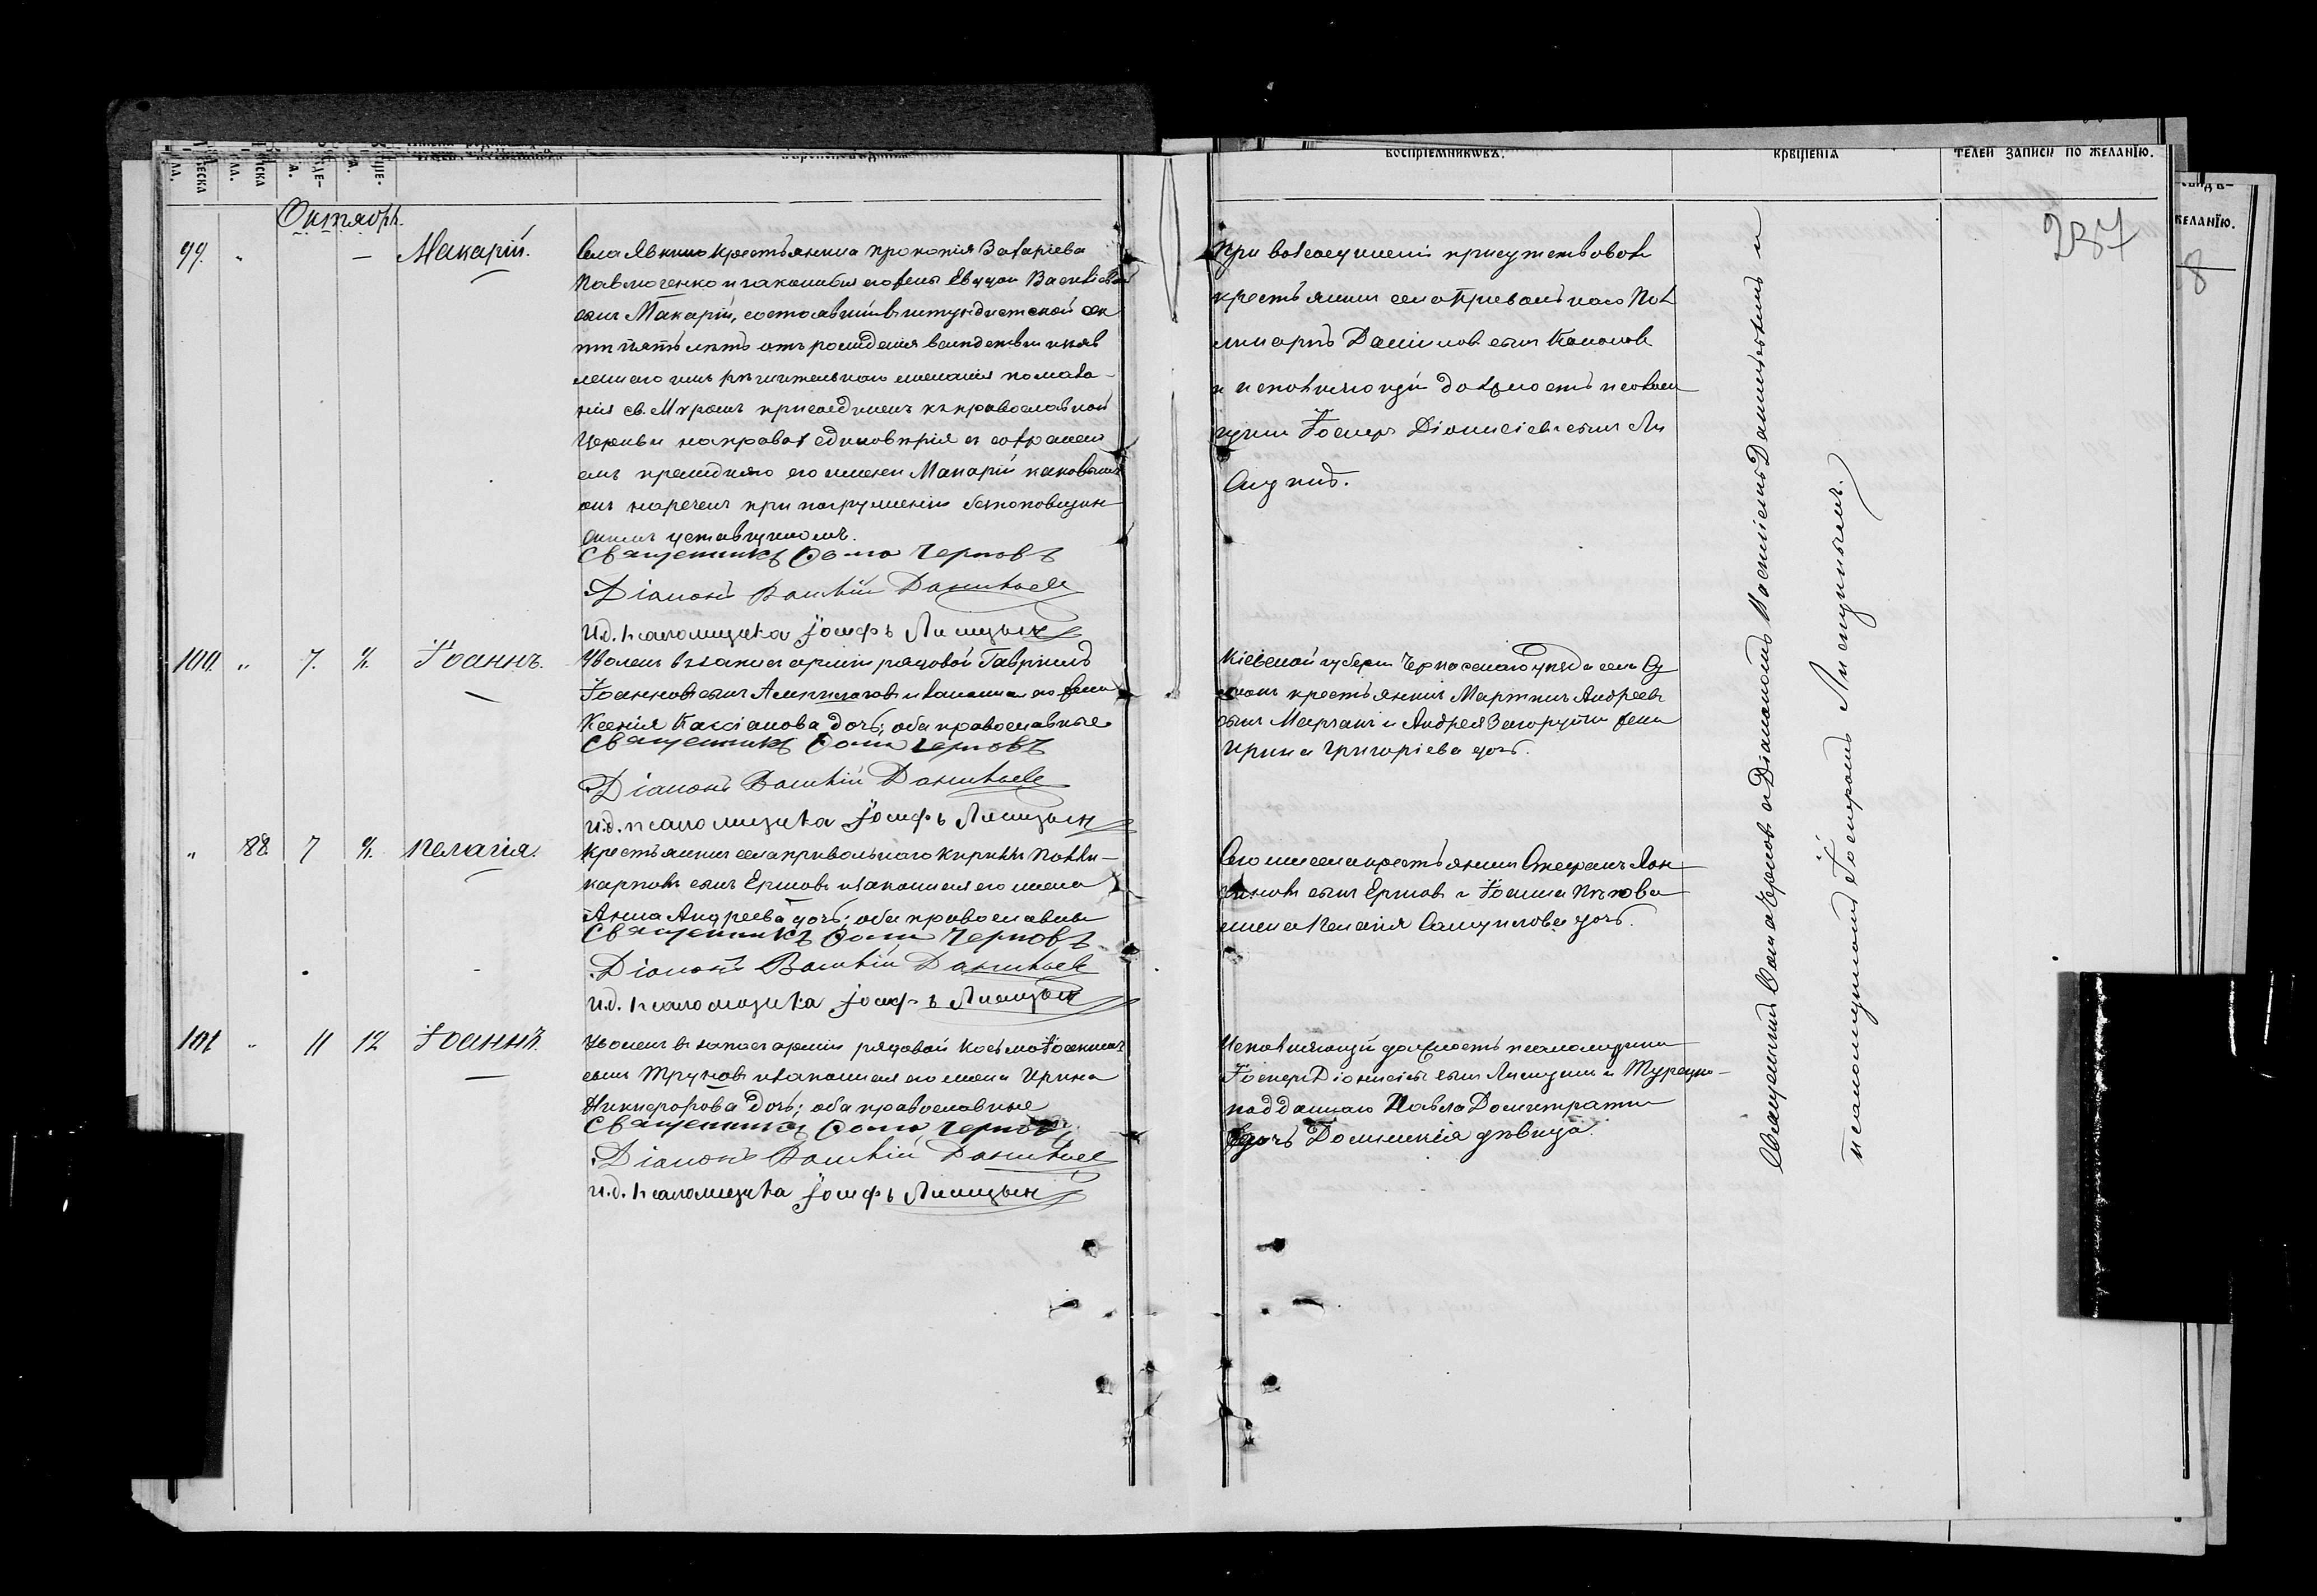 воспріемниковъ.
крещенія
телей записи по желанію.
желанію.
Октябрь.
237
8
99. " — Макарій.
Села Явкино крестьянина Прокопія Захаріева
Павлюченко и законныя его жены Евдокіи Васильевой
сынъ Макарій, состоявшій въ штундистской сек
ти пять лѣтъ отъ рожденія вслѣдствіи изъяв
леннаго имъ рѣшительнаго желанія помаза-
нія св. Мѵромъ присоединенъ къ православной
Церкви на правахъ единовѣрія съ сохранені
емъ прежняго его имени Макарій каковымъ
онъ нареченъ при погруженіи безпоповщин
скимъ уставщикомъ.
Священникъ Фома Черновъ
Діаконъ Василій Данильев
И.д. псаломщика Іосифъ Лисицын
При воссоединеніи присутствовали
крестьянинъ села Привольнаго Пол
Данилов сынъ Кононов
и исполняющій должность псалом
щика Іосифъ Діонисіевъ сынъ Ли
сицынъ.
100. " 7. 8. Іоаннъ.
Уволенъ въ запасъ арміи рядовой Гавріилъ
Іоанновъ сынъ и законная его жена
Ксенія Кассіанова дочь; оба православные
Священникъ Фома Черновъ
Діаконъ Василій Данильев
И.д. псаломщика Іосифъ Лисицын
Кіевской губерніи Черкаскаго уѣзда села
крестьянинъ Мартинъ Андреевъ
сынъ и Андрея Загоруйки жена
Ирина Григоріева дочь.
" 88 7 8. Пелагія.
Крестьянинъ села Привольнаго Кириллъ Поли-
карповъ сынъ Ершовъ и законная его жена
Анна Андреева дочь; оба православные
Священникъ Фома Черновъ
Діаконъ Василій Данильев
И.д. псаломщика Іосифъ Лисицын
Того же села крестьянинъ Стефанъ
сынъ Ершовъ и Іоанна
жена Пелагія Самуилова дочь.
101 " 11 12 Іоаннъ.
Уволенъ въ запасъ арміи рядовой Косьма Іоакимовъ
сынъ Труновъ и законная его жена Ирина
Никифорова дочь; оба православные
Священникъ Фома Черновъ
Діаконъ Василій Данильев
И.д. псаломщика Іосифъ Лисицын
Исполняющій должность псаломщика
Іосифъ Діонисіевъ сынъ Лисицынъ и Турецко-
подданнаго Павла
дочь Домникія дѣвица.
Священникъ Фома Черновъ съ Діакономъ Василіемъ и
псаломщикомъ Іосифомъ Лисицынымъ.